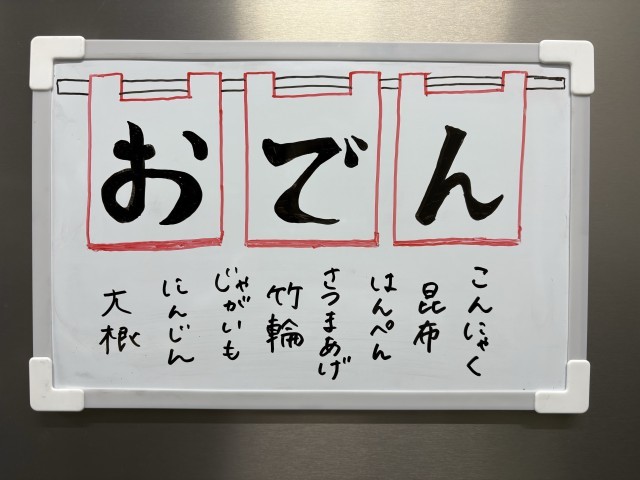 おでん
こんにゃく
昆布
はんぺん
さつまあげ
竹輪
じゃがいも
にんじん
大根